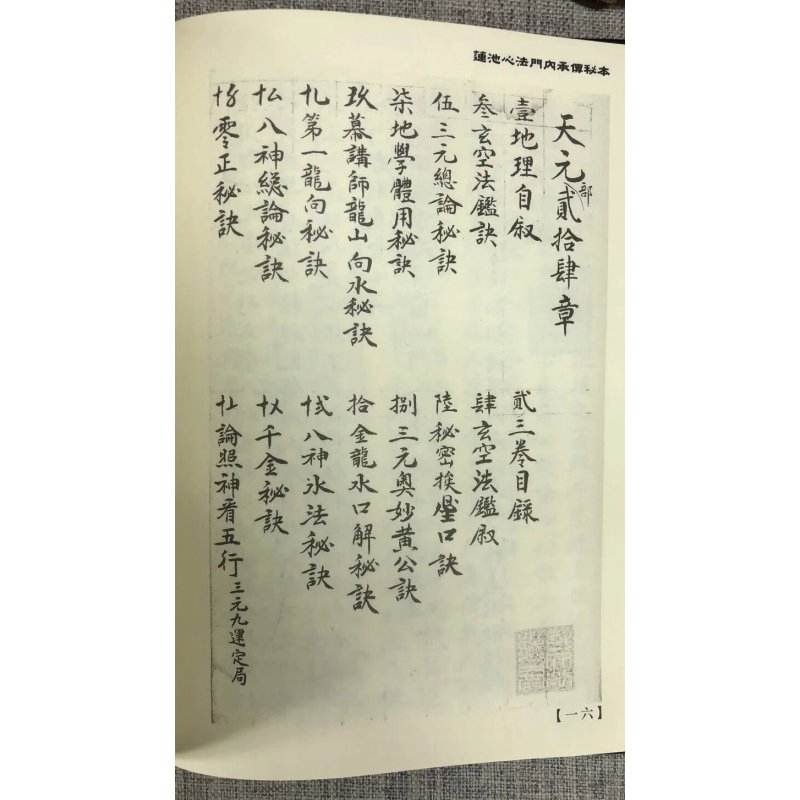 蓮池心法門內承傳秘本
天元部貳拾肆章
壹地理自叙
貳三卷目錄
叁玄空法鑑訣
肆玄空法鑑叙
伍三元總論秘訣
陸秘密挨星口訣
柒地學體用秘訣
捌三元奧妙黃公訣
玖幕講師龍山向水秘訣
拾金龍水口解秘訣
第一龍向秘訣
十弍八神水法秘訣
十厶八神總論秘訣
十〤千金秘訣
零正秘訣
十〦論照神看五行三元九運定局
【一六】